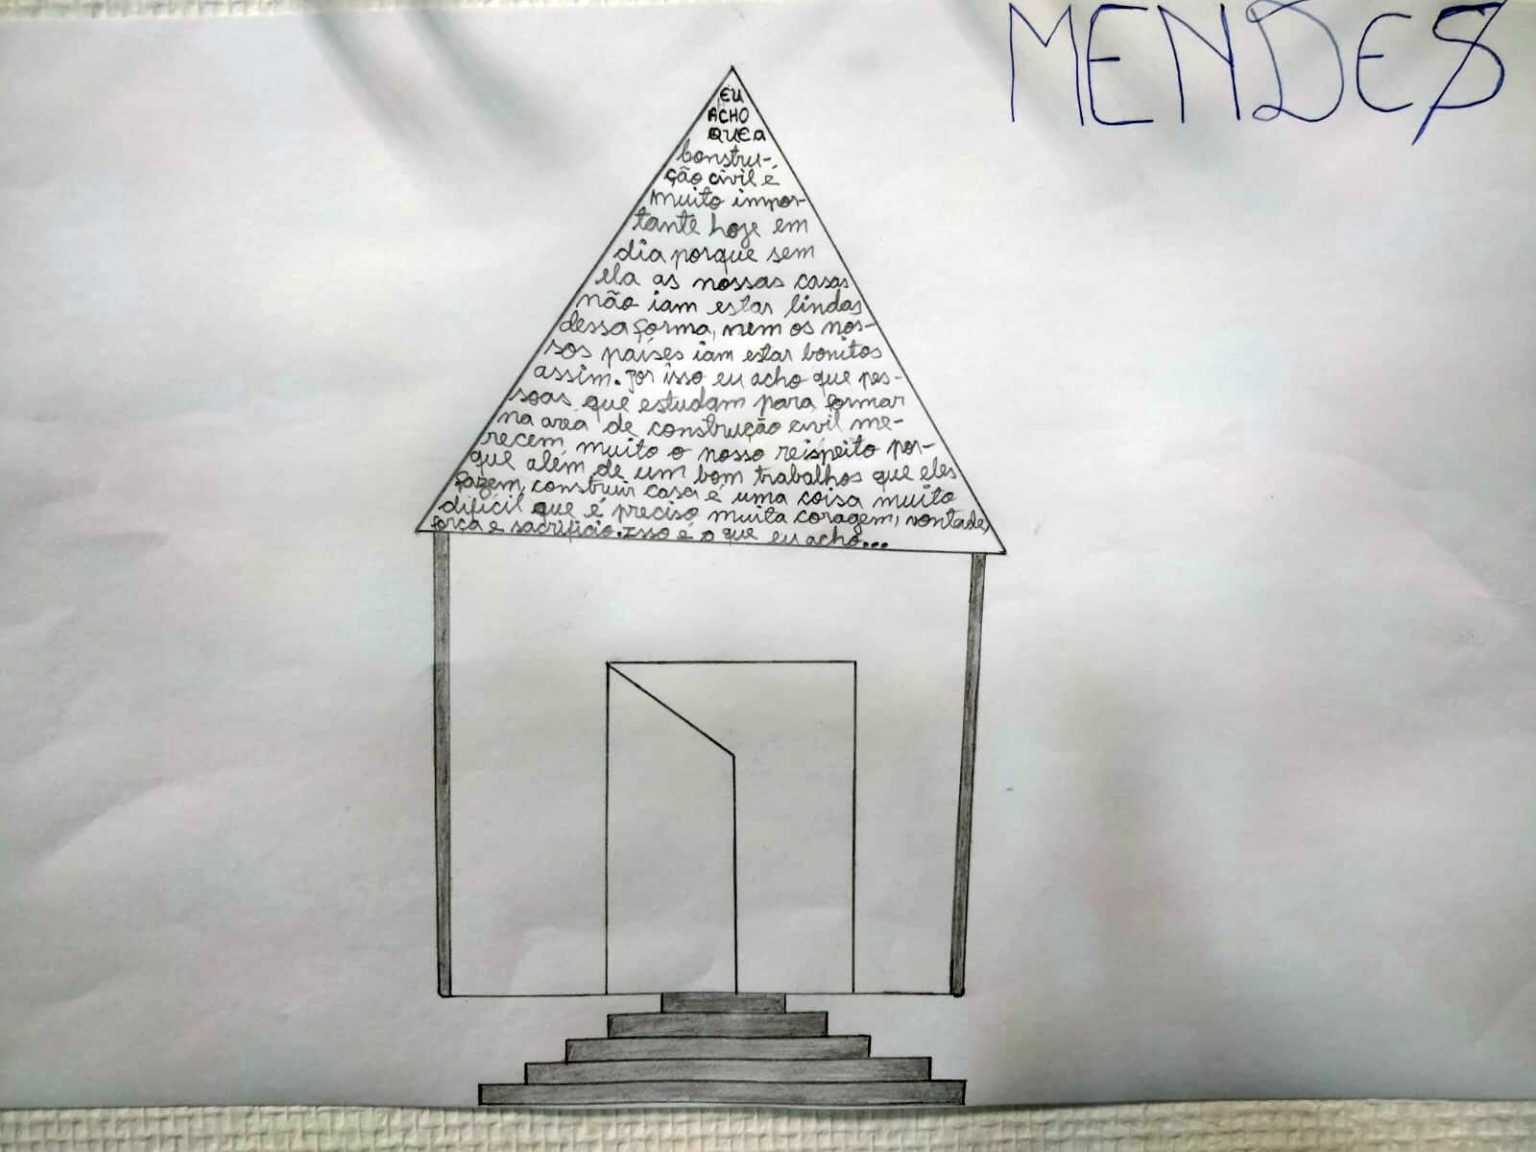 MENDES
EU
ACHO
QUE a
constru-
ção civil é
muito impor-
tante hoje em
dia porque sem
ela as nossas casas
não iam estar lindas
dessa forma, nem os nos-
sos países iam estar bonitos
assim. Por isso eu acho que pes-
soas que estudam para formar
na area de construção civil me-
recem muito o nosso reispeito por-
que além de um bom trabalhos que eles
fazem, construir casa é uma coisa muito
difícil que é preciso muita coragem, vontade,
força e sacrifício. Isso é o que eu acho...